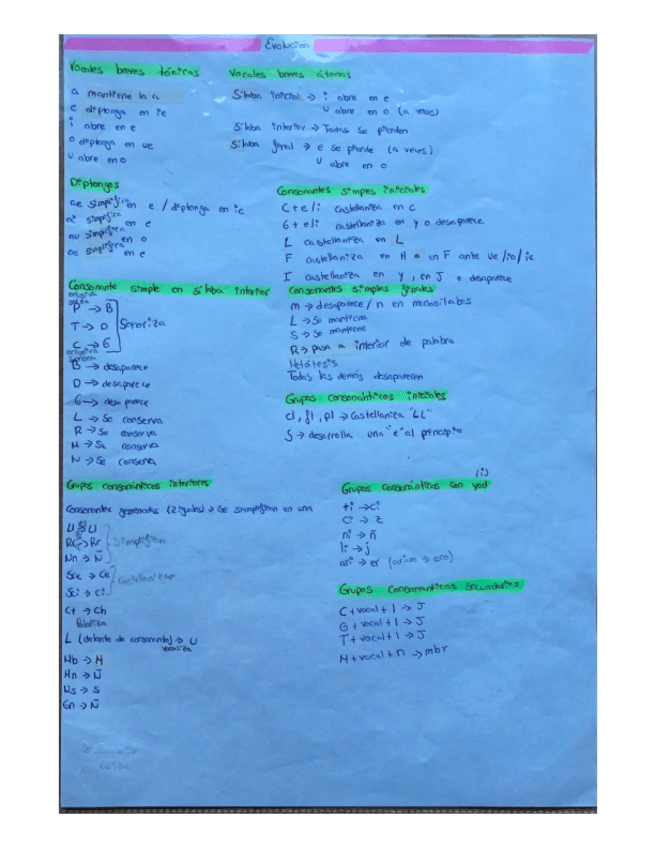 Evolución
Vocales breves tónicas
a mantiene la a
e diptonga en ie
i abre en e
o diptonga en ue
u abre en o
Vocales breves átonas
Sílaba inicial → i abre en e
u abre en o (a veces)
Sílaba interior → Todas se pierden
Sílaba final → e se pierde (a veces)
u abre en o
Diptongos
ae simplifica en e / diptonga en ie
ei simplifica en e
au simplifica en o
oe simplifica en e
Consonantes simples iniciales
C+e/i castellaniza en c
G+e/i castellaniza en y o desaparece
L castellaniza en L
F castellaniza en H o un F ante ue/io/ie
I castellaniza en y, en J o desaparece
Consonante simple en sílaba interior
oclusiva sorda
P → B
T → D
C → G
Sonoriza
oclusiva sonora
B → desaparece
D → desaparece
G → desaparece
L → Se conserva
R → Se conserva
M → Se conserva
N → Se conserva
Consonantes simples finales
m → desaparece / n en monosílabos
L → Se mantiene
S → Se mantiene
R → pasa a interior de palabra
Metátesis
Todas las demás desaparecen
Grupos consonánticos iniciales
cl, fl, pl → castellaniza "LL"
S → desarrolla una "e" al principio
Grupos consonánticos interiores
Consonantes geminadas (2 iguales) → Se simplifican en una
Simplifican
Nn → Ñ
Sce → Ce
Sci → Ci
Castellanizan
Ct → Ch
Palatiza
L (delante de consonante) → U
vocaliza
Mb → M
Mn → Ñ
Ns → S
Gn → Ñ
Grupos consonánticos con yod
(i)
ti → ci
ci → z
ni → ñ
li → j
ari → er (arium → ero)
Grupos consonánticos secundarios
C + vocal + l → J
G + vocal + l → J
T + vocal + l → J
M + vocal + n → mbr